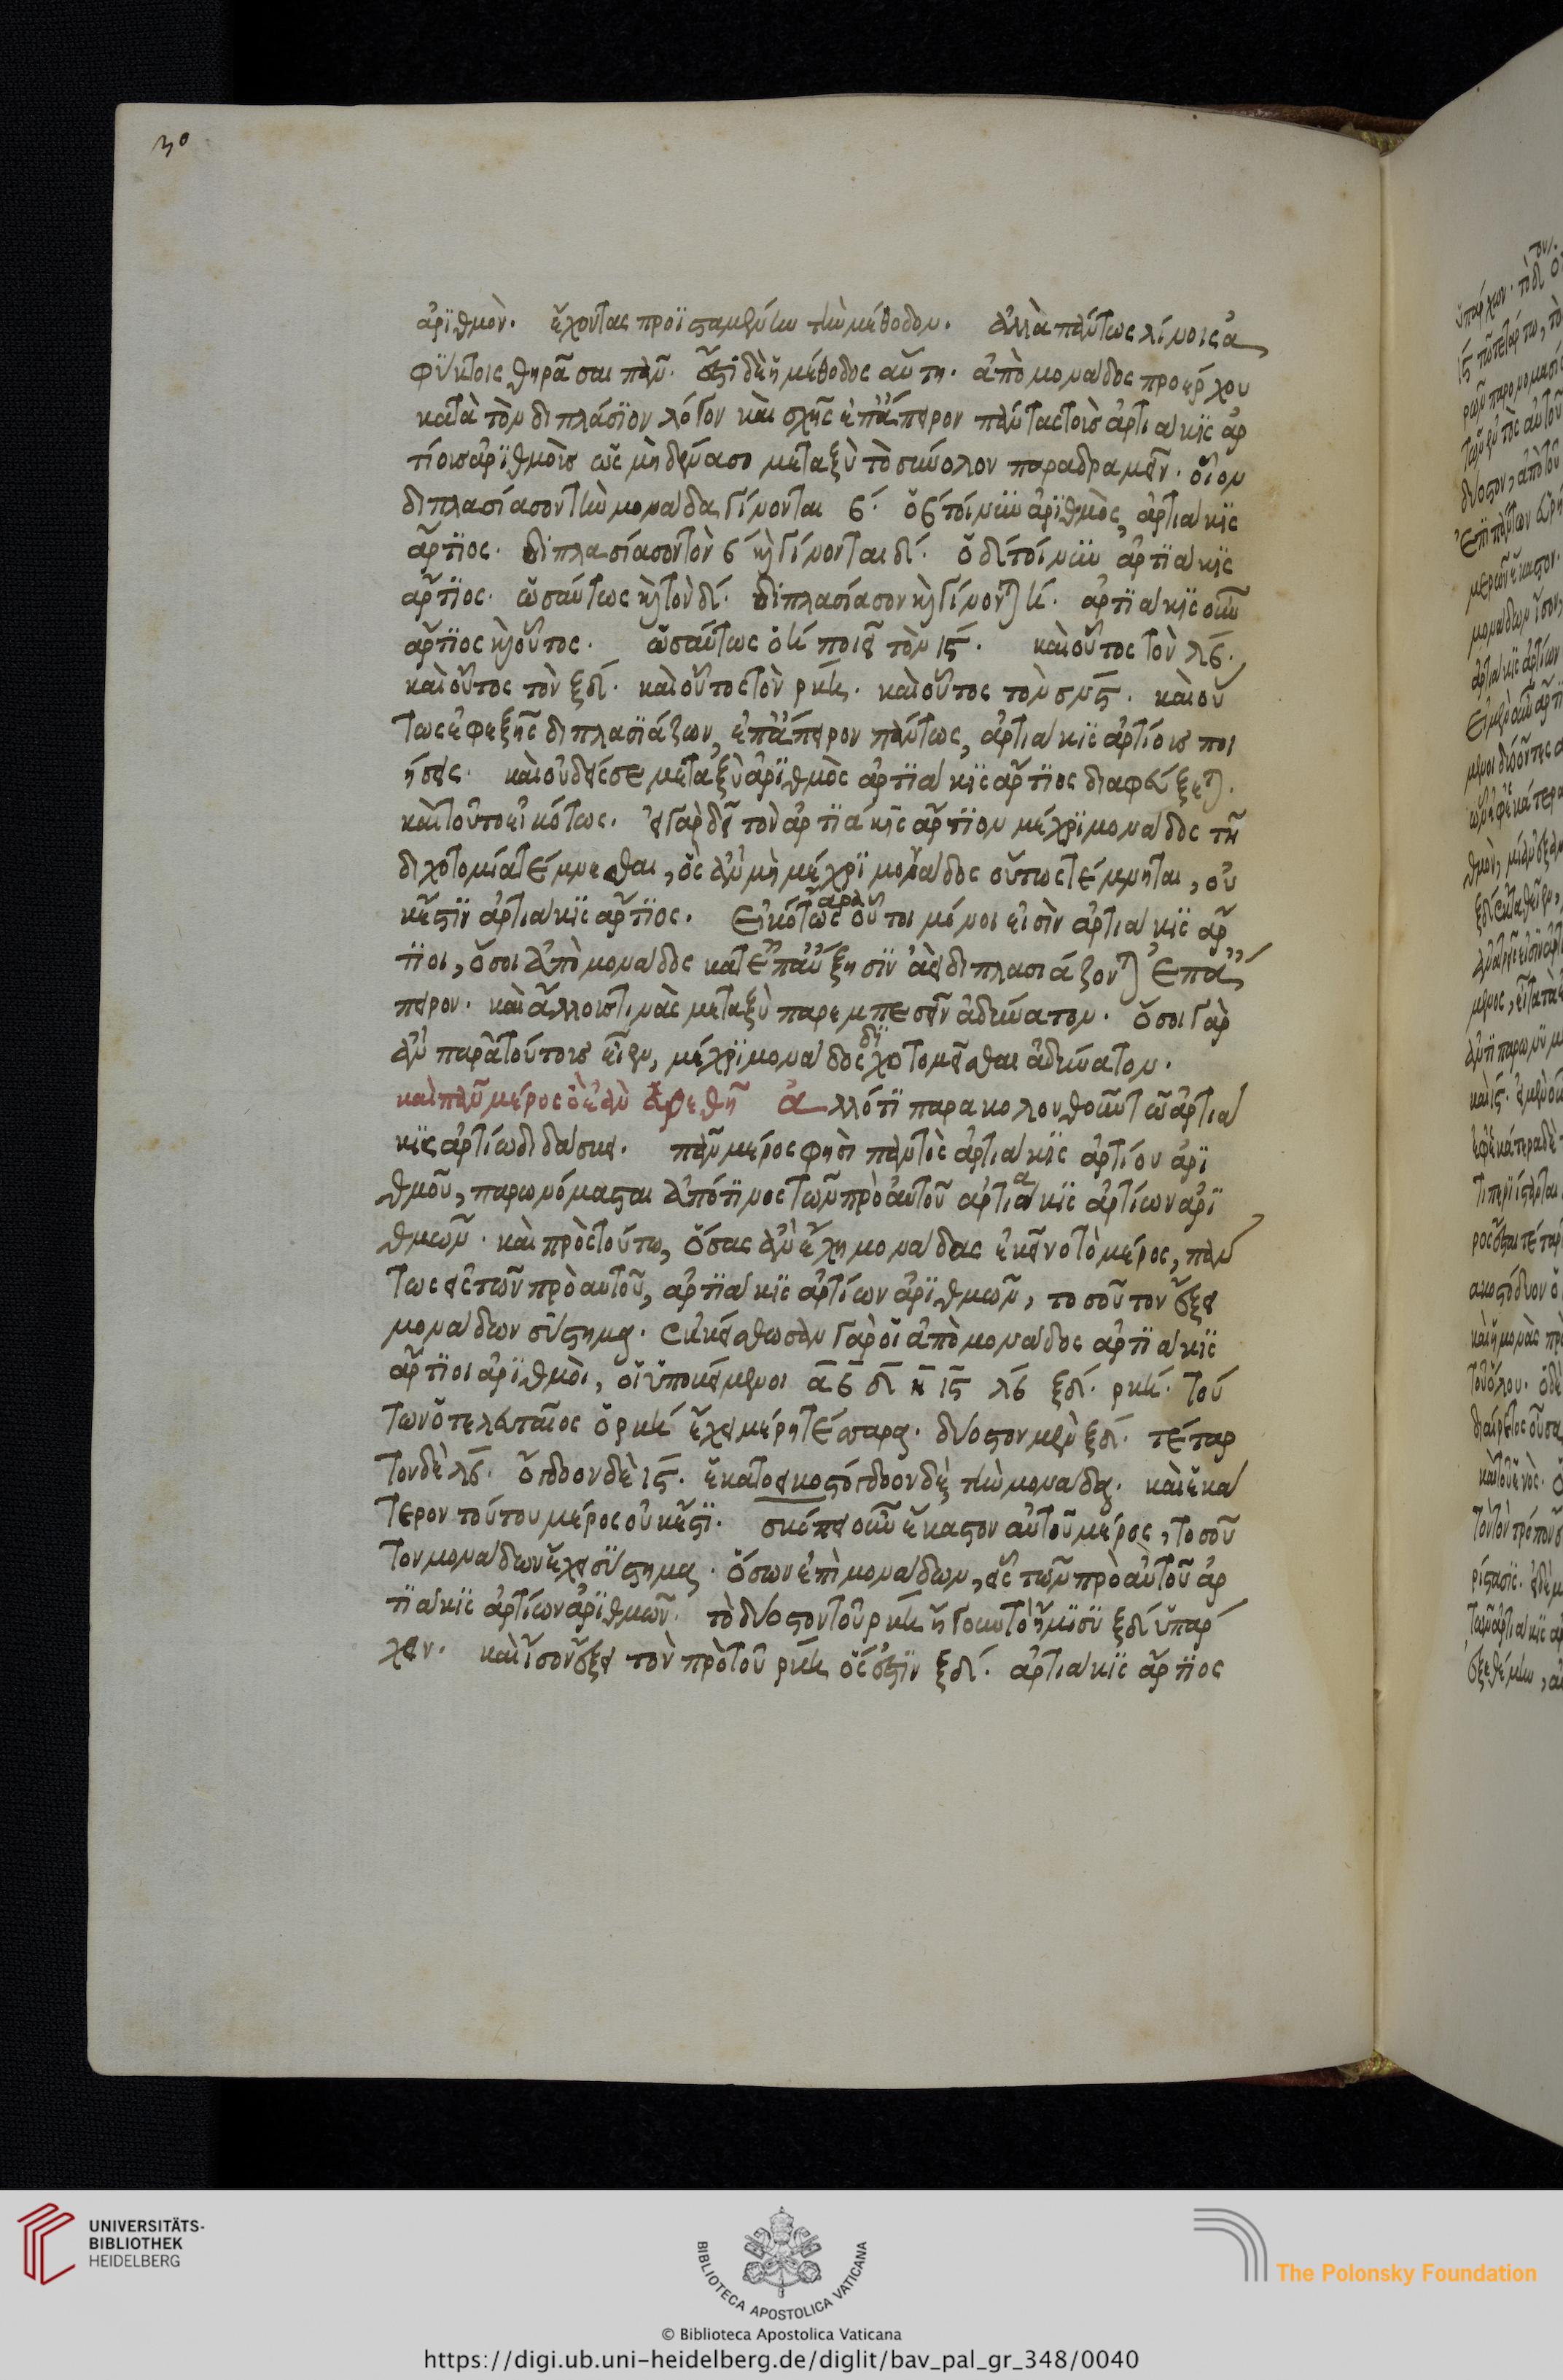 30
ἀρϊθμὸν. ἔχοντας προϊσταμένην τὴν μέθοδον. ἀλλὰ πάντως λίνοις ἀ
φΰκτοις θηρᾶσαι πᾶν. ἔστι δὲ ἡ μέθοδος αὕτη. ἀπὸ μονάδος προέρχου
κατὰ τὸν διπλάσϊον λόγον καὶ σχῆς ἐπἄπειρον πάντας τοὺς ἀρτιάκϊς ἀρ
τίους ἀρϊθμοὺς ὡς μηδένα σο μεταξὺ τὸ σύνολον παραδραμεῖν. οἷον
διπλασίασον τὴν μονάδα γίνονται β. ὁ β τοίνυν ἀρϊθμὸς, ἀρτιάκϊς
ἄρτϊος. διπλασίασον τὸν β καὶ γίνονται δ. ὁ δ τοίνυν ἀρτϊάκϊς
ἄρτϊος. ὡσαύτως καὶ τὸν δ. διπλασίασον καὶ γίνονται η. ἀρτϊάκϊς οὖν
ἄρτϊος καὶ οὗτος. ὡσαύτως ὁ η ποιεῖ τὸν ιϛ. καὶ οὗτος τὸν λβ.
καὶ οὗτος τὸν ξδ. καὶ οὗτος τὸν ρκη. καὶ οὗτος τὸν σνϛ. καὶ οὕ
τως ἐφεξῆς διπλασϊάζων, ἐπἄπειρον πάντως, ἀρτιάκϊς ἀρτίους ποι
ήσεις. καὶ οὐδείς σε μεταξὺ ἀρϊθμὸς ἀρτϊάκϊς ἄρτϊος διαφεύξεται.
καὶ τοῦτο εἰκότως. εἰ γὰρ δεῖ τὸν ἀρτϊάκϊς ἄρτϊον μέχρϊ μονάδος τῆ
διχοτομία τέμνεσθαι, ὃς ἂν μὴ μέχρϊ μονάδος οὕτως τέμνηται, οὐ
κ ἔστϊν ἀρτιάκϊς ἄρτϊος. εἰκότως ἄρα οὗτοι μόνοι εἰσὶν ἀρτιάκϊς ἄρ
τϊοι, ὅσοι ἀπὸ μονάδος κατ ἐπαύξησϊν ἀεὶ διπλασιάζονται ἐπἄ
πειρον. καὶ ἄλλους τινὰς μεταξὺ παρεμπεσεῖν ἀδύνατον. ὅσοι γὰρ
ἂν παρὰ τούτους εἶεν, μέχρϊ μονάδος δϊχοτομεῖσθαι ἀδύνατον.
καὶ πᾶν μέρος ὃ ἐὰν εὑρεθῆ ἄλλό τϊ παρακολουθοῦν τῶ ἀρτιά
κϊς ἀρτίω διδάσκει. πᾶν μέρος φησὶ παντὸς ἀρτιάκϊς ἀρτίου ἀρϊ
θμοῦ, παρωνόμασται ἀπό τϊνος τῶν πρὸ αὐτοῦ ἀρτιάκϊς ἀρτίων ἀρϊ
θμῶν. καὶ πρὸς τούτω, ὅσας ἂν ἔχη μονάδας ἐκεῖνο τὸ μέρος, πάν
τως εἷς τῶν πρὸ αὐτοῦ, ἀρτϊάκϊς ἀρτίων ἀρϊθμῶν, τοσοῦτον ἕξει
μονάδων σΰστημα. ἐκκείσθωσαν γὰρ οἱ ἀπὸ μονάδος ἀρτϊάκϊς
ἄρτϊοι ἀρϊθμοὶ, οἱ ὑποκείμενοι α β δ η ιϛ λβ ξδ. ρκη. τού
των ὁ τελευταῖος ὁ ρκη ἔχει μέρη τέσσαρα. δύοστον μὲν ξδ. τέταρ
τον δὲ λβ. ὄγδοον δὲ ιϛ. ἑκατοεικοστόγδοον δὲ, τὴν μονάδα. καὶ ἑκά
τερον τούτου μέρος οὐκ ἔστϊ. σκόπει οὖν ἕκαστον αὐτοῦ μέρος, τοσοῦ
τον μονάδων ἔχει σΰστημα. ὅσων ἐπὶ μονάδων, εἷς τῶν πρὸ αὐτοῦ ἀρ
τϊάκϊς ἀρτίων ἀρϊθμῶν. τὸ δύοστον τοῦ ρκη ἤγουν τὸ ἥμϊσϋ ξδ ὑπάρ
χειν. καὶ ἴσον ἕξει τὸν πρὸ τοῦ ρκη ὅς ἐστϊν ξδ. ἀρτιάκϊς ἄρτϊος
UNIVERSITÄTS-
BIBLIOTHEK
HEIDELBERG
BIBLIOTECA APOSTOLICA VATICANA
The Polonsky Foundation
© Biblioteca Apostolica Vaticana
https://digi.ub.uni-heidelberg.de/diglit/bav_pal_gr_348/0040